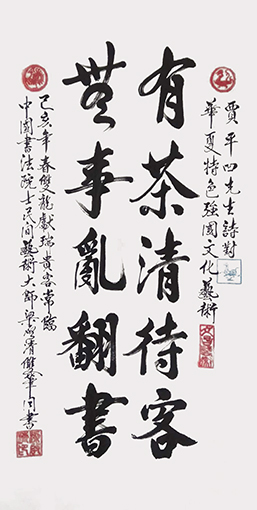 賈平凹先生詩對
華夏特色強國文化藝術
有茶清待客
無事亂翻書
己亥年春雙龍獻瑞貴客常臨
中國書法院士民間藝術大師梁
雙筆同書